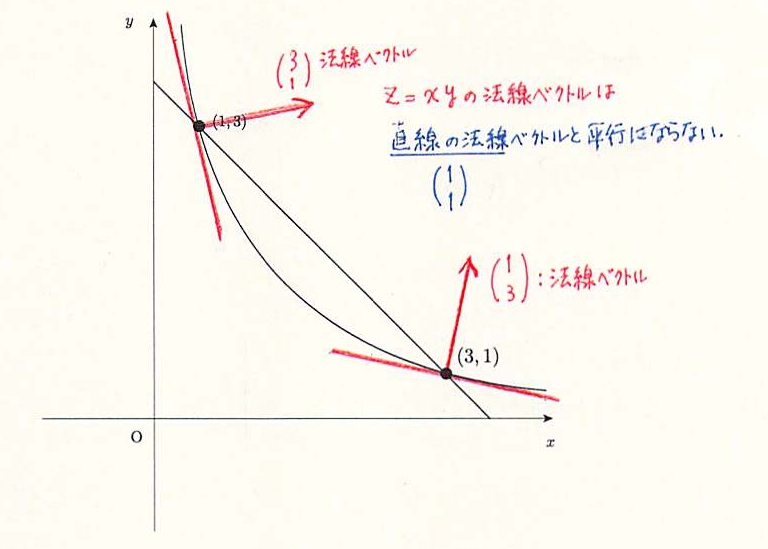 y
(3 1) 法線ベクトル
z=xyの法線ベクトルは
(1, 3)
直線の法線ベクトルと平行にならない.
(1 1)
(1 3) : 法線ベクトル
(3, 1)
O
x